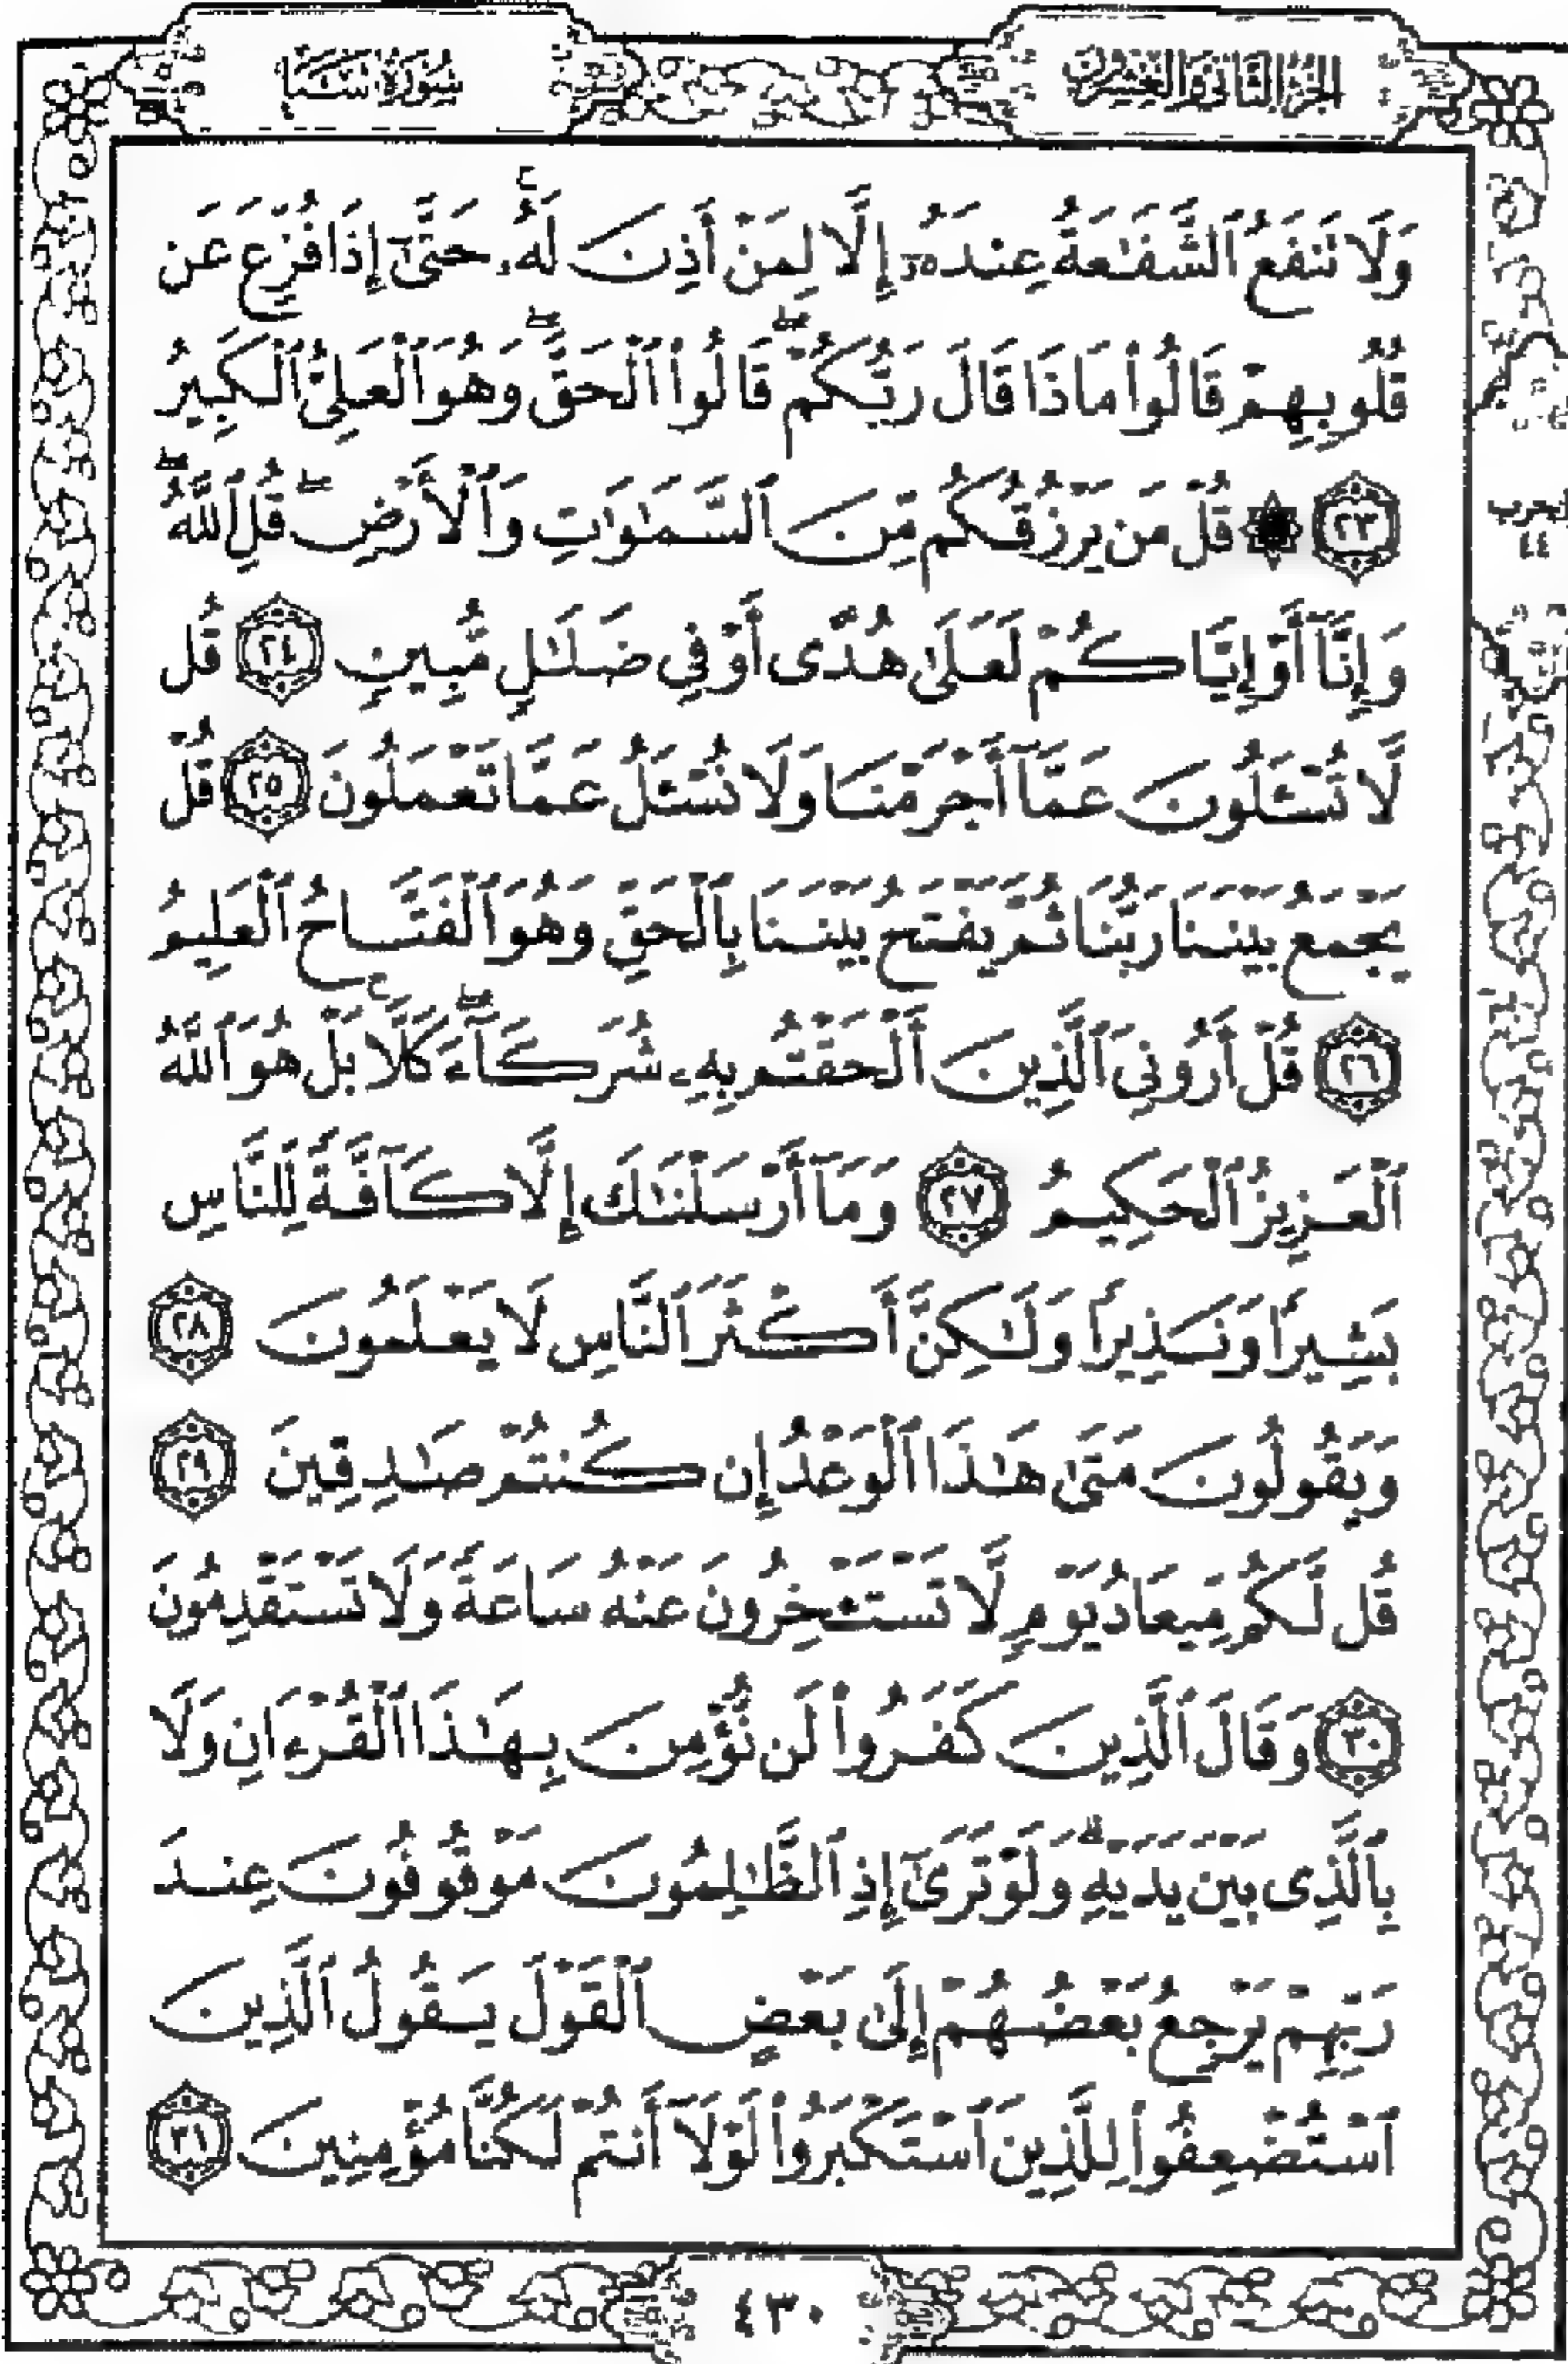 الجزء الثاني والعشرون
سورة سبأ
وَلَا تَنفَعُ ٱلشَّفَٰعَةُ عِندَهُۥٓ إِلَّا لِمَنْ أَذِنَ لَهُۥ ۚ حَتَّىٰٓ إِذَا فُزِّعَ عَن
قُلُوبِهِمْ قَالُوا۟ مَاذَا قَالَ رَبُّكُمْ ۖ قَالُوا۟ ٱلْحَقَّ ۖ وَهُوَ ٱلْعَلِىُّ ٱلْكَبِيرُ
٢٣ ۞ قُلْ مَن يَرْزُقُكُم مِّنَ ٱلسَّمَٰوَٰتِ وَٱلْأَرْضِ ۖ قُلِ ٱللَّهُ ۖ
وَإِنَّآ أَوْ إِيَّاكُمْ لَعَلَىٰ هُدًى أَوْ فِى ضَلَٰلٍ مُّبِينٍ ٢٤ قُل
لَّا تُسْـَٔلُونَ عَمَّآ أَجْرَمْنَا وَلَا نُسْـَٔلُ عَمَّا تَعْمَلُونَ ٢٥ قُلْ
يَجْمَعُ بَيْنَنَا رَبُّنَا ثُمَّ يَفْتَحُ بَيْنَنَا بِٱلْحَقِّ وَهُوَ ٱلْفَتَّاحُ ٱلْعَلِيمُ
٢٦ قُلْ أَرُونِىَ ٱلَّذِينَ أَلْحَقْتُم بِهِۦ شُرَكَآءَ ۖ كَلَّا ۚ بَلْ هُوَ ٱللَّهُ
ٱلْعَزِيزُ ٱلْحَكِيمُ ٢٧ وَمَآ أَرْسَلْنَٰكَ إِلَّا كَآفَّةً لِّلنَّاسِ
بَشِيرًا وَنَذِيرًا وَلَٰكِنَّ أَكْثَرَ ٱلنَّاسِ لَا يَعْلَمُونَ ٢٨
وَيَقُولُونَ مَتَىٰ هَٰذَا ٱلْوَعْدُ إِن كُنتُمْ صَٰدِقِينَ ٢٩
قُل لَّكُم مِّيعَادُ يَوْمٍ لَّا تَسْتَـْٔخِرُونَ عَنْهُ سَاعَةً وَلَا تَسْتَقْدِمُونَ
٣٠ وَقَالَ ٱلَّذِينَ كَفَرُوا۟ لَن نُّؤْمِنَ بِهَٰذَا ٱلْقُرْءَانِ وَلَا
بِٱلَّذِى بَيْنَ يَدَيْهِ ۗ وَلَوْ تَرَىٰٓ إِذِ ٱلظَّٰلِمُونَ مَوْقُوفُونَ عِندَ
رَبِّهِمْ يَرْجِعُ بَعْضُهُمْ إِلَىٰ بَعْضٍ ٱلْقَوْلَ يَقُولُ ٱلَّذِينَ
ٱسْتُضْعِفُوا۟ لِلَّذِينَ ٱسْتَكْبَرُوا۟ لَوْلَآ أَنتُمْ لَكُنَّا مُؤْمِنِينَ ٣١
٤٣٠